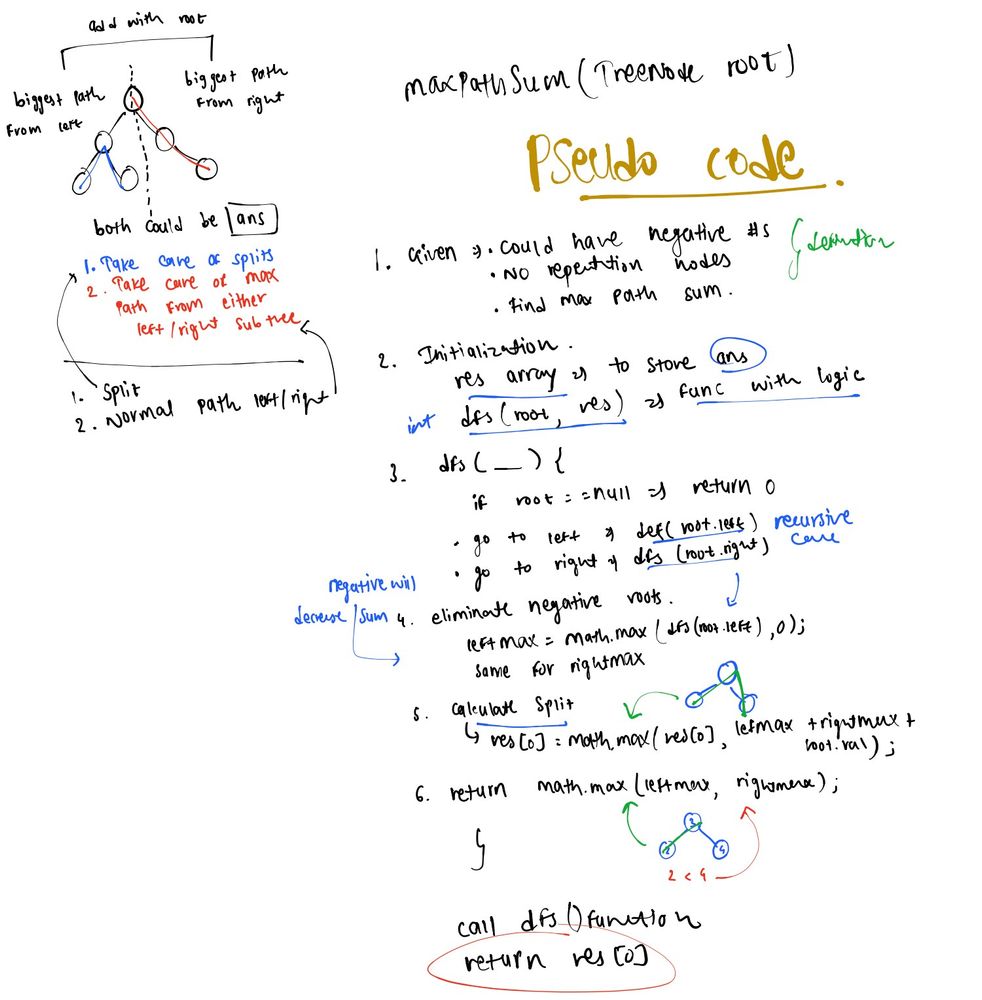 add with root
biggest path
From left
biggest path
From right
both could be ans
1. Take care of splits
2. Take care of max
path from either
left/right subtree
1. Split
2. Normal path left/right
maxPathSum(TreeNode root)
Pseudo code.
1. Given => • Could have negative #s
• No repentition nodes
• Find max path sum.
2. Initialization.
res array => to store ans
int dfs(root, res) => func with logic
3. dfs(__) {
if root == null => return 0
• go to left => def(root.left) recursive
• go to right => dfs(root.right) case
negative will
decrease sum
4. eliminate negative roots.
leftmax = math.max(dfs(root.left),0);
same for rightmax
5. calculate split
res[0] = math.max(res[0], leftmax + rightmax +
root.val);
6. return math.max(leftmax, rightmax);
3
2 4
2 < 4
}
call dfs() function
return res[0]